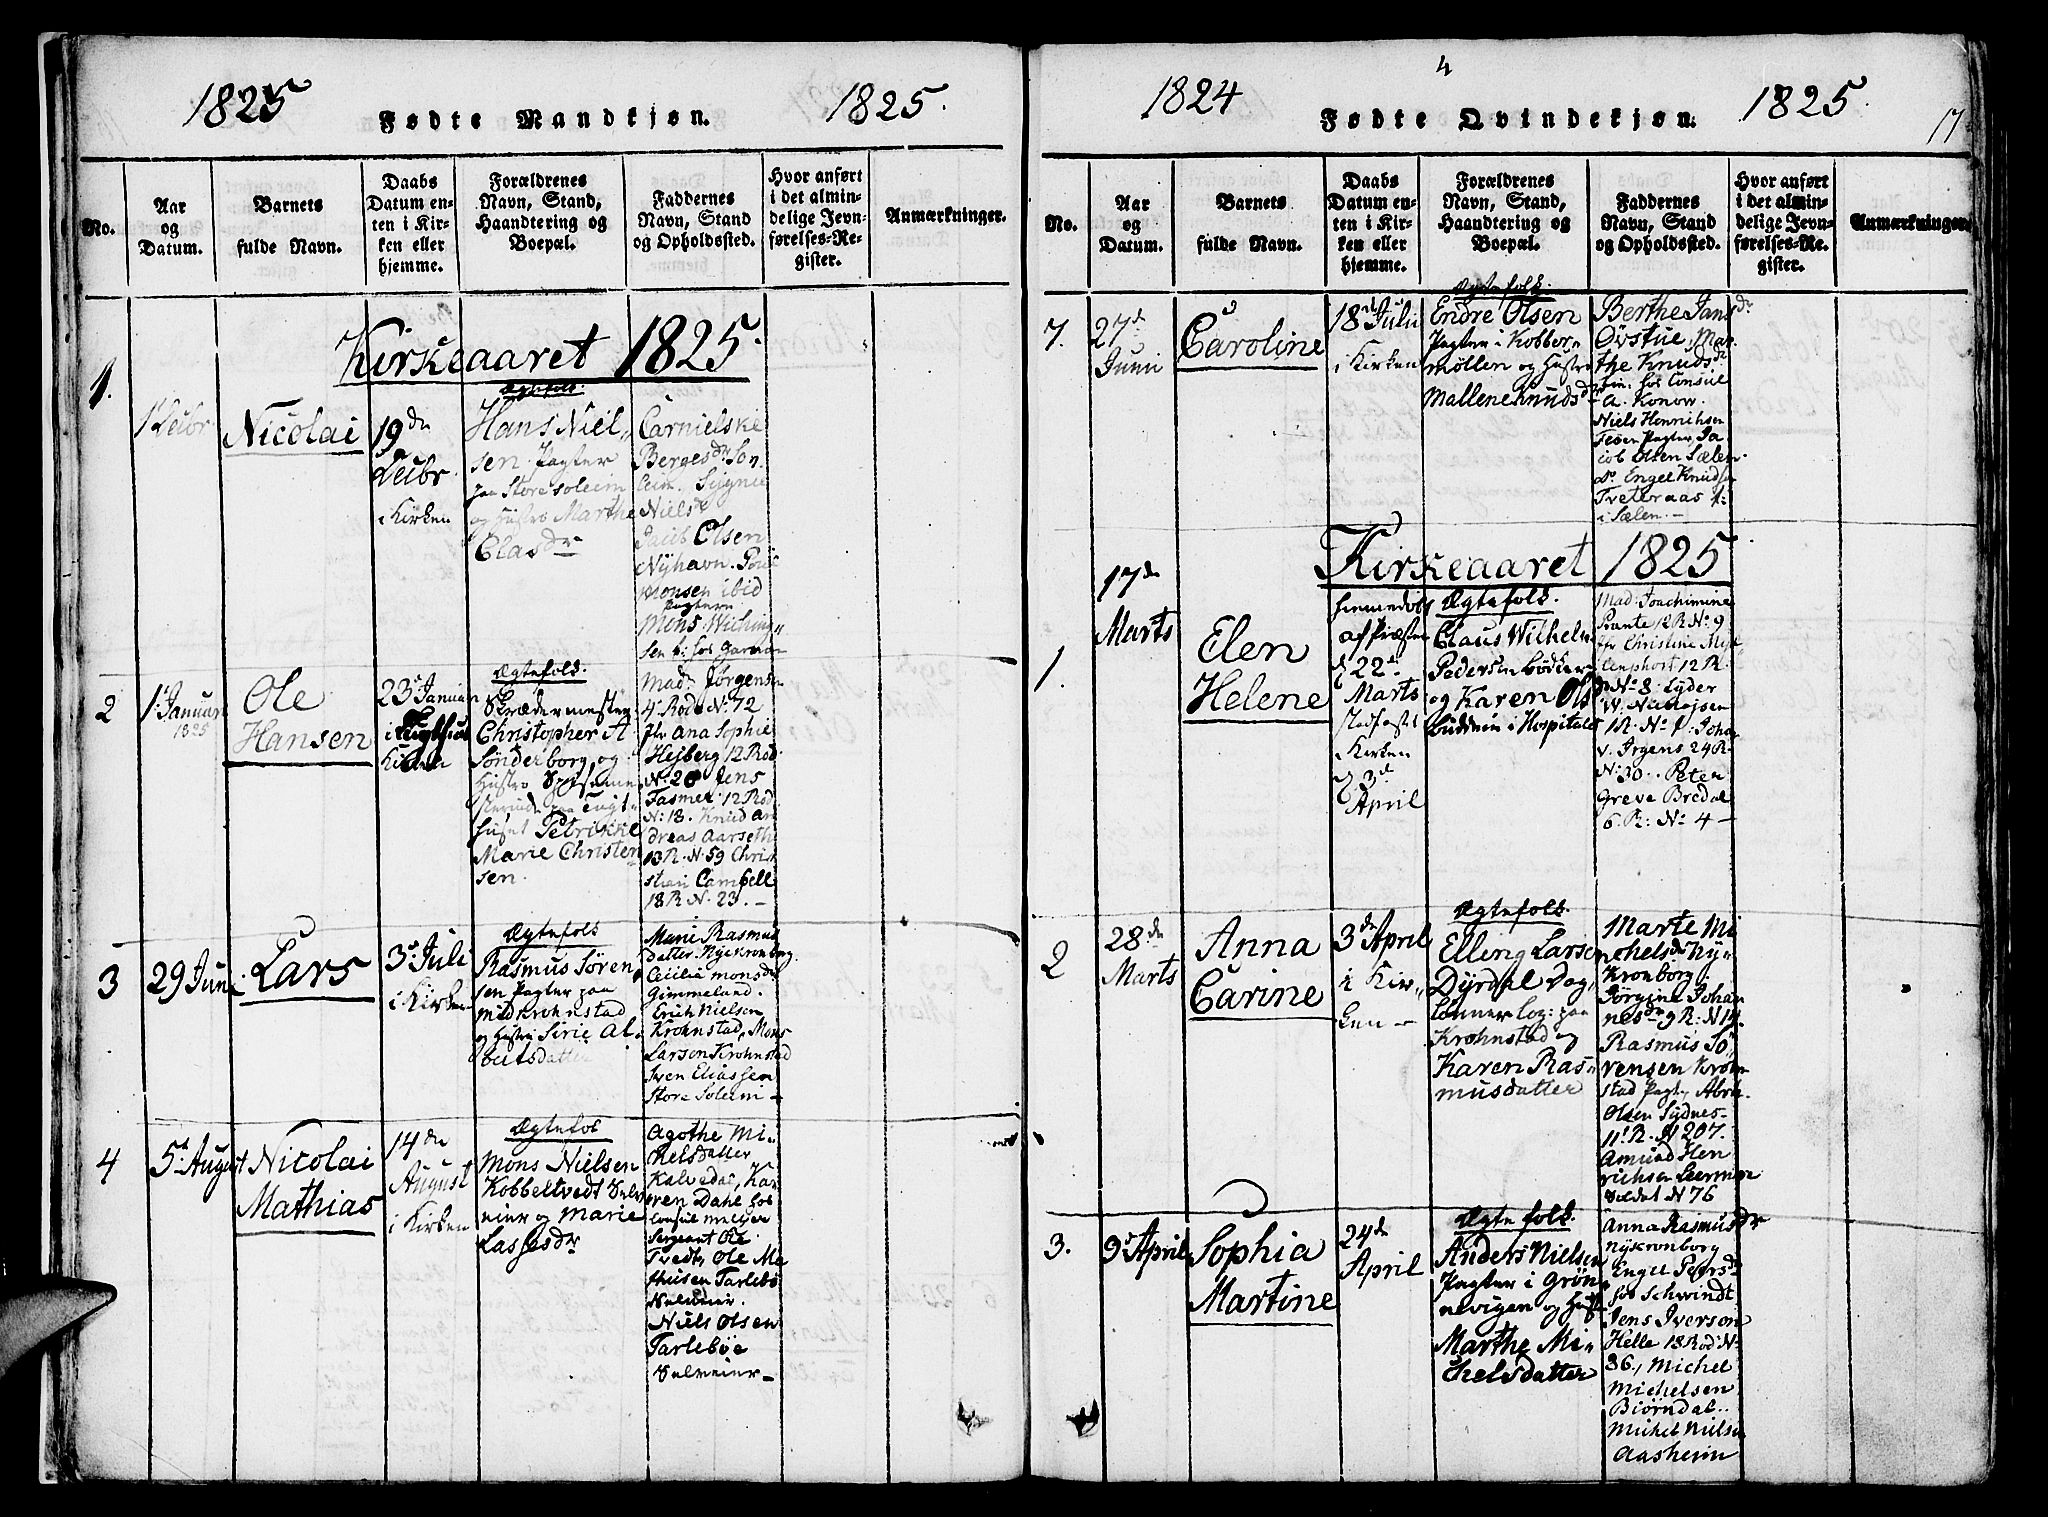 1825
Fødte Mandkjøn.
1825.
No.
Aar
og
Datum.
Barnets
fulde Navn.
Daabs
Datum en-
ten i Kir-
ken eller
hjemme.
Forældrenes
Navn, Stand,
Haandtering og
Boepæl.
Faddernes
Navn, Stand
og Opholdssted.
Hvor anført
i det almin-
delige Jevn-
førelses-Re-
gister.
Anmærkninger.
Kirkeaaret 1825.
1.
Nicolai
19de
i Kirken
Ægtefolk.
Hans Niel„
sen. Pagter
paa Store soleim
og Hustro Marthe
Clasdr
Bergesdr
Nielsd
Olsen
Nyhavn.
Monsen ibid
Pagtere
Mons
2
1 Januari
1825
Ole
Hansen
23d Januari
Kirken
Ægtefolk.
Skrædermester
Christopher A
Sønderborg og
Hustro
huset Petrikke
Marie Christen
sen.
Mad: Jørgensen
4 Rode No: 72
Jfr Ana Sophie
Heiberg 12 Rod
No: 20 Jens
Fasmer 12 Rod
No: 18. Knud An
dreas Aarseth
13 R. N: 59 Chris
stian Cambell
18 R N. 23. –
3
29 Juni
Lars
3d Juli
i Kirken
Ægtefolk
Rasmus Søren
sen Pagter paa
midt Krohnstad
og Hustro Sirie Al-
Marie Rasmus
datter Nyekronborg
Cecilia Monsdr
Gimmeland.
Erich Nielsen
Krohnstad, Mons
Larsen Krohnstad
Sven Eliassen
Store Soleim –
4
5d August
Nicolai
Mathias
14de
August
i Kirken
Ægtefol
Mons Nielsen
Kobbeltvedt
og Marie
Lassesdr
Agothe Mi-
chelsdatter
Kalvedal, Ka-
ren Dahl hos
Consul Meltzer
Sergeant Ole
Tvedt, Ole Ma
thisen Tarlebø
Niels Olsen
Tarlebøe
1824
4
Fødte Qvindekjøn.
1825.
17
No.
Aar
og
Datum.
Barnets
fulde Navn.
Daabs
Datum en-
ten i Kir-
ken eller
hjemme.
Forældrenes
Navn, Stand,
Haandtering og
Boepæl.
Faddernes
Navn, Stand
og Opholdssted.
Hvor anført
i det almin-
delige Jevn-
førelses-Re-
gister.
Anmærkninger.
7.
27d
Juni
Caroline
18d Juli
i Kirken
Ægtefolk.
Endre Olsen
Pagter i Kobber„
møllen og Hustro
Mallene Knudsdr
Berthe Jansdr
Øvstue, Mar
the Knudsdr
hos Consul
A. Konow.
Niels Henrichsen
Pagter, Ja
cob Olsen Sælen
Engel Knudsen
Tveteraas
i Sælen. –
Kirkeaaret 1825
1.
17de
Marts
Elen
Helene
hiemmedøbt
af Præsten
d 22d
Marts
stadfæst i
Kirken
d 3d
April
Ægtefolk.
Claus Wilhelm
Pedersen Bødker
og Karen Ols
i Hospitalet
Mad: Joachimine
12 R No: 9
Jfr Christine
12 R
No 8
1 R: No 1: Johan
v. Jrgens 24 R
No: 30. Peter
Greve Bredal
6. R: No 4 –
2
28de
Marts
Anna
Carine
3de April
i Kir„
ken –
Ægtefolk.
Elleng Larsen
Dyrdal Dag„
lønner log: paa
Krohnstad og
Karen Ras„
musdatter
Marte Mi
chelsdr Ny„
Kronborg
Jørgine Johan
nesdr 9 R: N 14
Rasmus Sø„
rensen Krohn
stad Pagter, Abra
Olsen Sydnes
11te R. N 207.
Amund Hen
richsen Leermoe
Soldat N 76
3.
9d April
Sophia
Martine
24de
April
Ægtefolk.
Anders Nielsen
Pagter i Grøn
nevigen og Hust
Marthe Mi„
chelsdatter
Anna Rasmusdr
Nykronborg
Engel Peersdr
hos Schwindt
Jens Iverson
Helle 18 Rod No
36, Michel
Michelsen
Biørndal.
Michel Nielsen
Aasheim